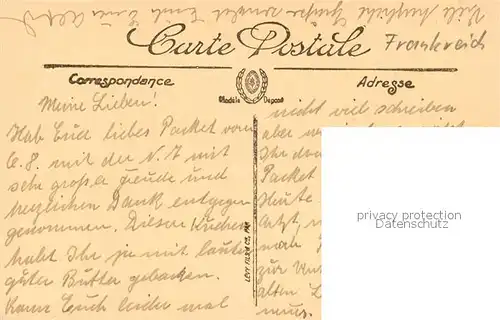 Viele herzliche Grüße sendet Euch Euer Alfred
Carte Postale
Frankreich
Correspondance
Adresse
Modèle Déposé
Meine Lieben!
Hab Eure liebes Packet vom
6.8. mit der N. 7 mit
sehr großer Freude und
herzlichen Dank entgegen
genommen. Diesen Kuchen
habt Ihr ja mit lauter
guter Butter gebacken.
Kann Euch leider mal
LEVY FILS & Cie, PAR
nicht viel schreiben
aber
Ihr
Packet
Heute
noch
zur
alten L
neues.
privacy protection
Datenschutz